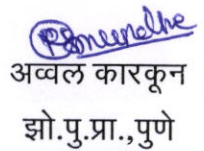 अव्वल कारकून
झो.पु.प्रा.,पुणे